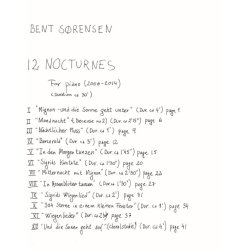 BENT SØRENSEN
12 NOCTURNES
For piano (2000-2014)
(Duration ca 30')
I "Mignon - und die Sonne geht unter" (Dur. ca 4') page 1
II "Mondnacht" (Berceuse no 2) (Dur. ca 2'15") page 6
III "Nächtlicher Fluss" (Dur. ca 1') page 9
IV "Barcarola" (Dur. ca 2') page 12
V "In den Morgen tanzen" (Dur. ca 1'45") page 15
VI "Sigrids Kantate" (Dur. ca 1'30") page 20
VII "Mitternacht mit Mignon" (Dur. ca 2'30") page 22
VIII "In Rosenblätter tanzen" (Dur. ca 1'30") page 27
IX "Sigrids Wiegenlied" (Dur. ca 2') page 31
X "309 Sterne in einem kleinen Fenster" (Dur. ca 5') page 34
XI "Wiegenlieder" (Dur. ca 2½') page 37
XII "Und die Sonne geht auf" (Dur. ca 4') page 41